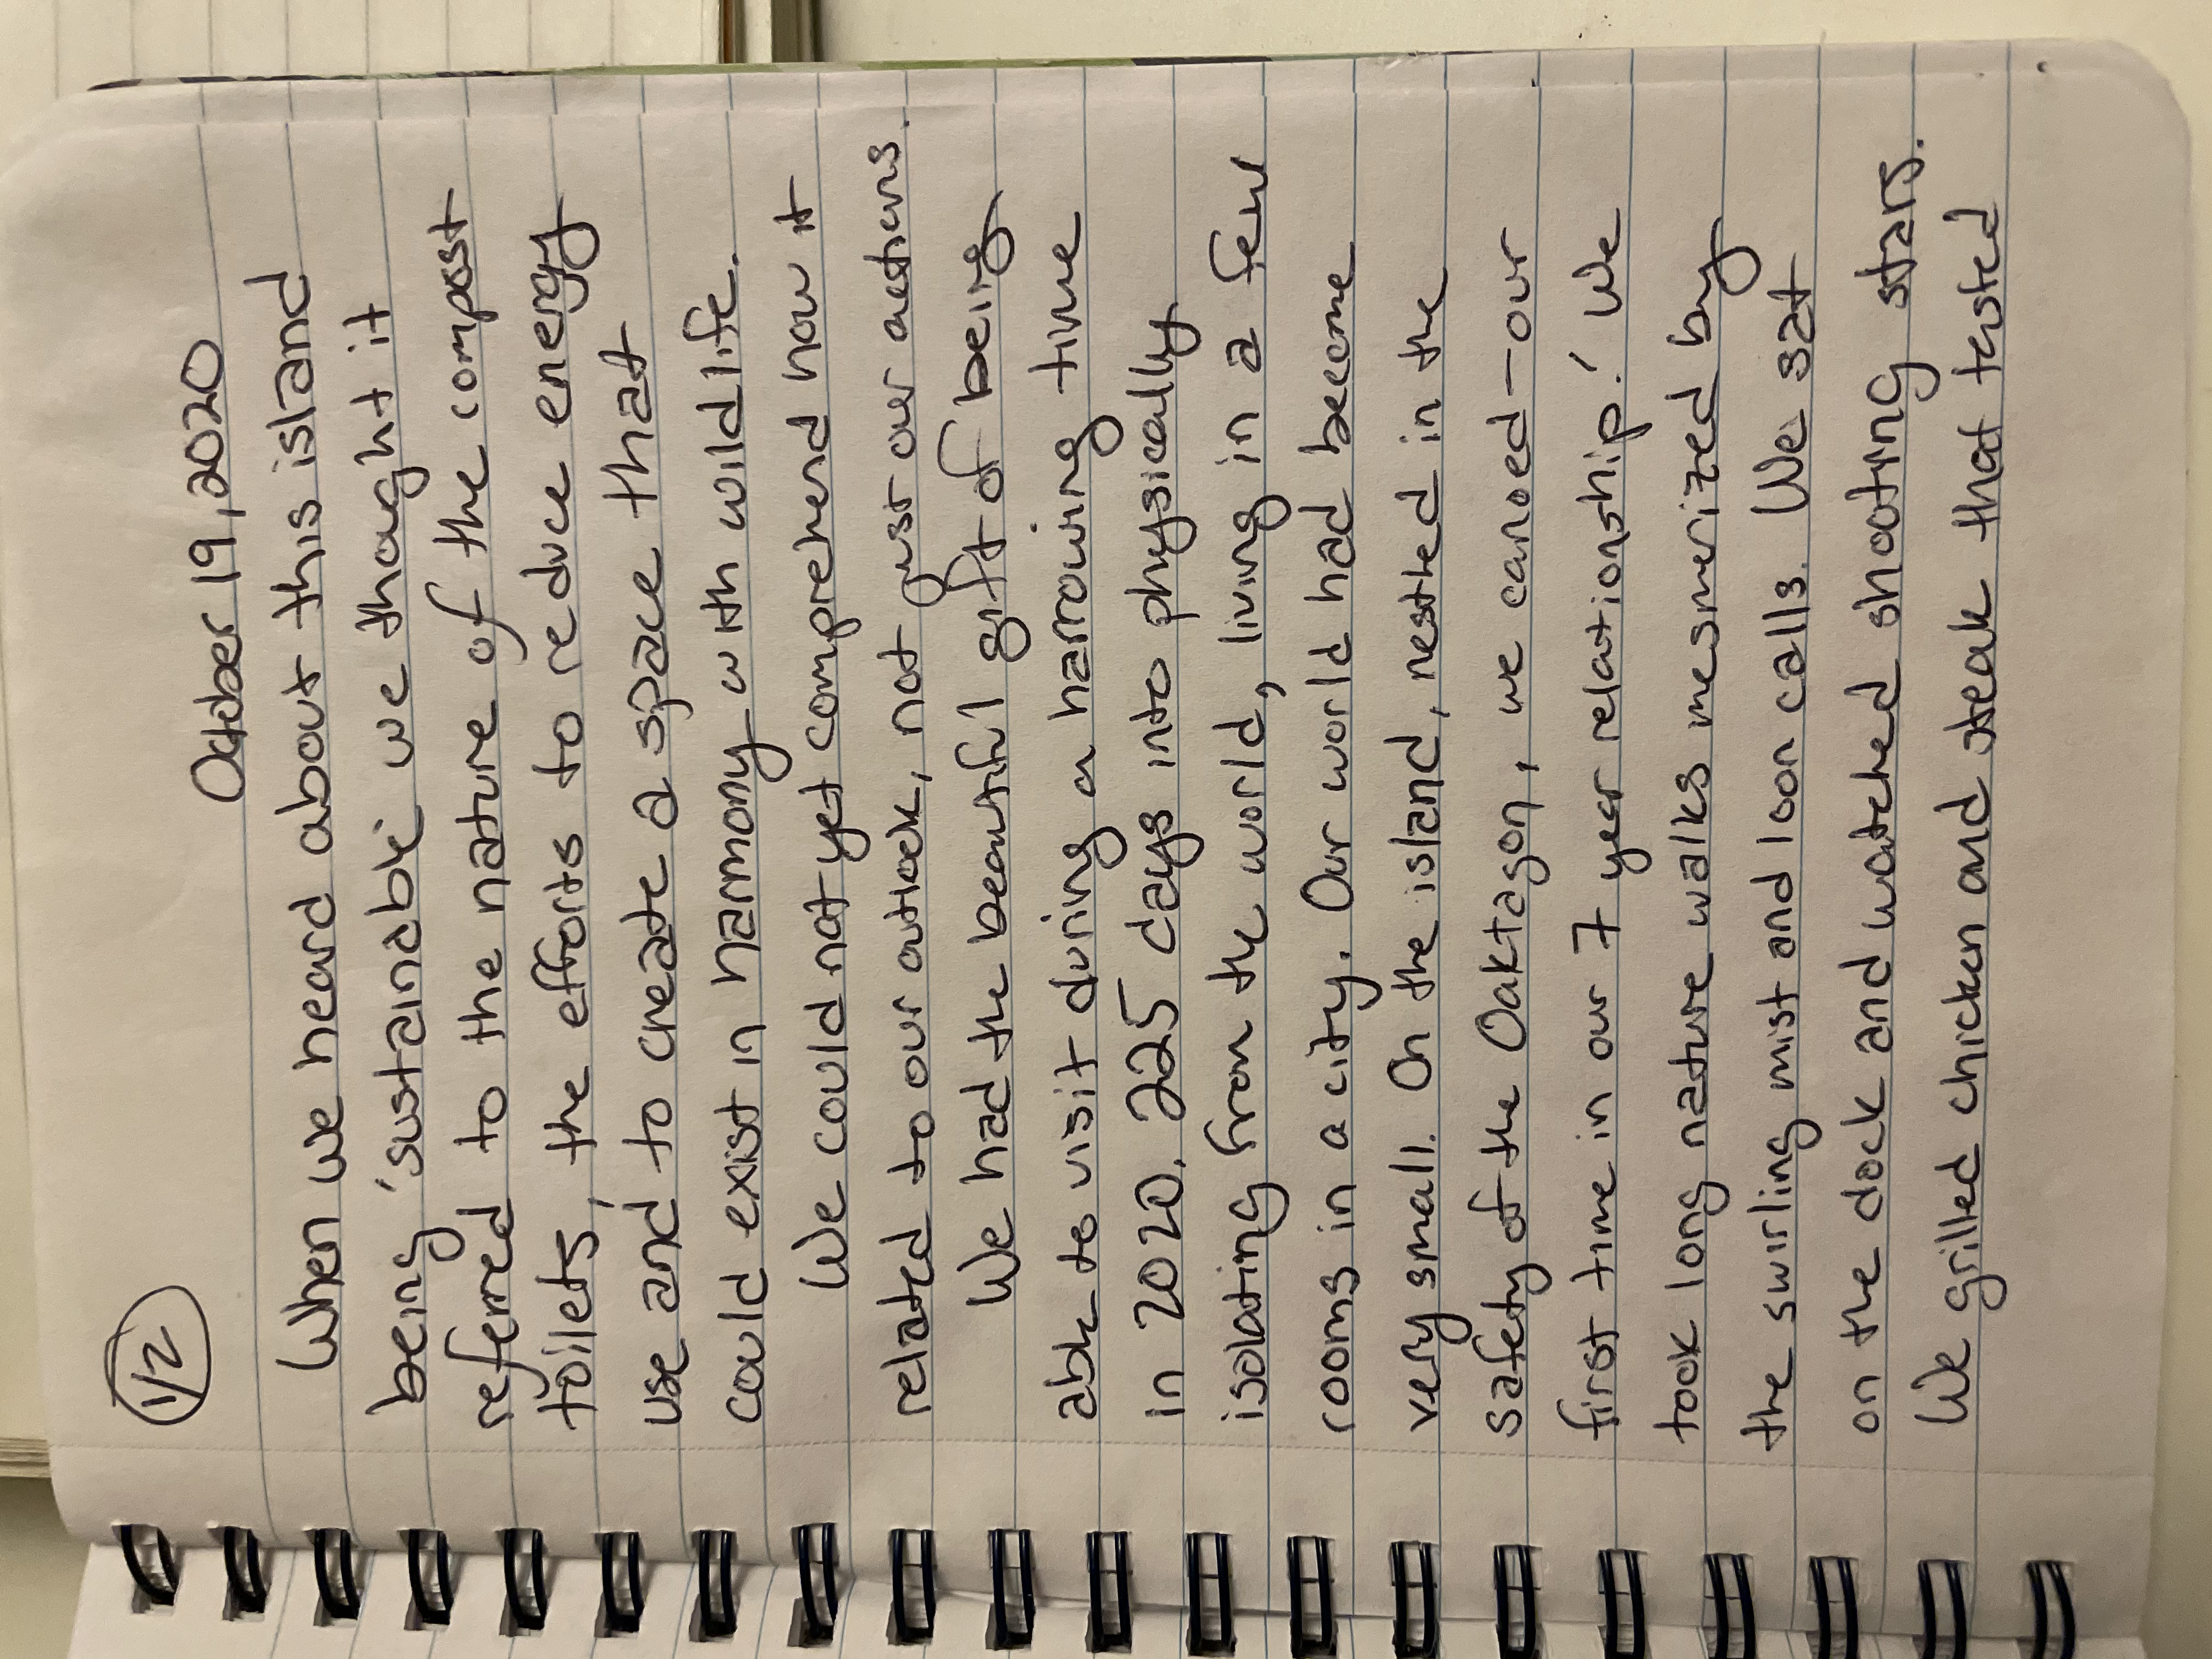 1/2
October 19, 2020
When we heard about this island
being 'sustainable' we thought it
referred to the nature of the compost
toilets, the efforts to reduce energy
use and to create a space that
could exist in harmony with wildlife.
We could not yet comprehend how it
related to our outlook, not just our actions.
We had the beautiful gift of being
able to visit during a harrowing time
in 2020. 225 days into physically
isolating from the world, living in a few
rooms in a city. Our world had become
very small. On the island, nestled in the
safety of the Oaktagon, we canoed - our
first time in our 7 year relationship! We
took long nature walks mesmerized by
the swirling mist and loon calls. We sat
on the dock and watched shooting stars.
We grilled chicken and steak that tasted